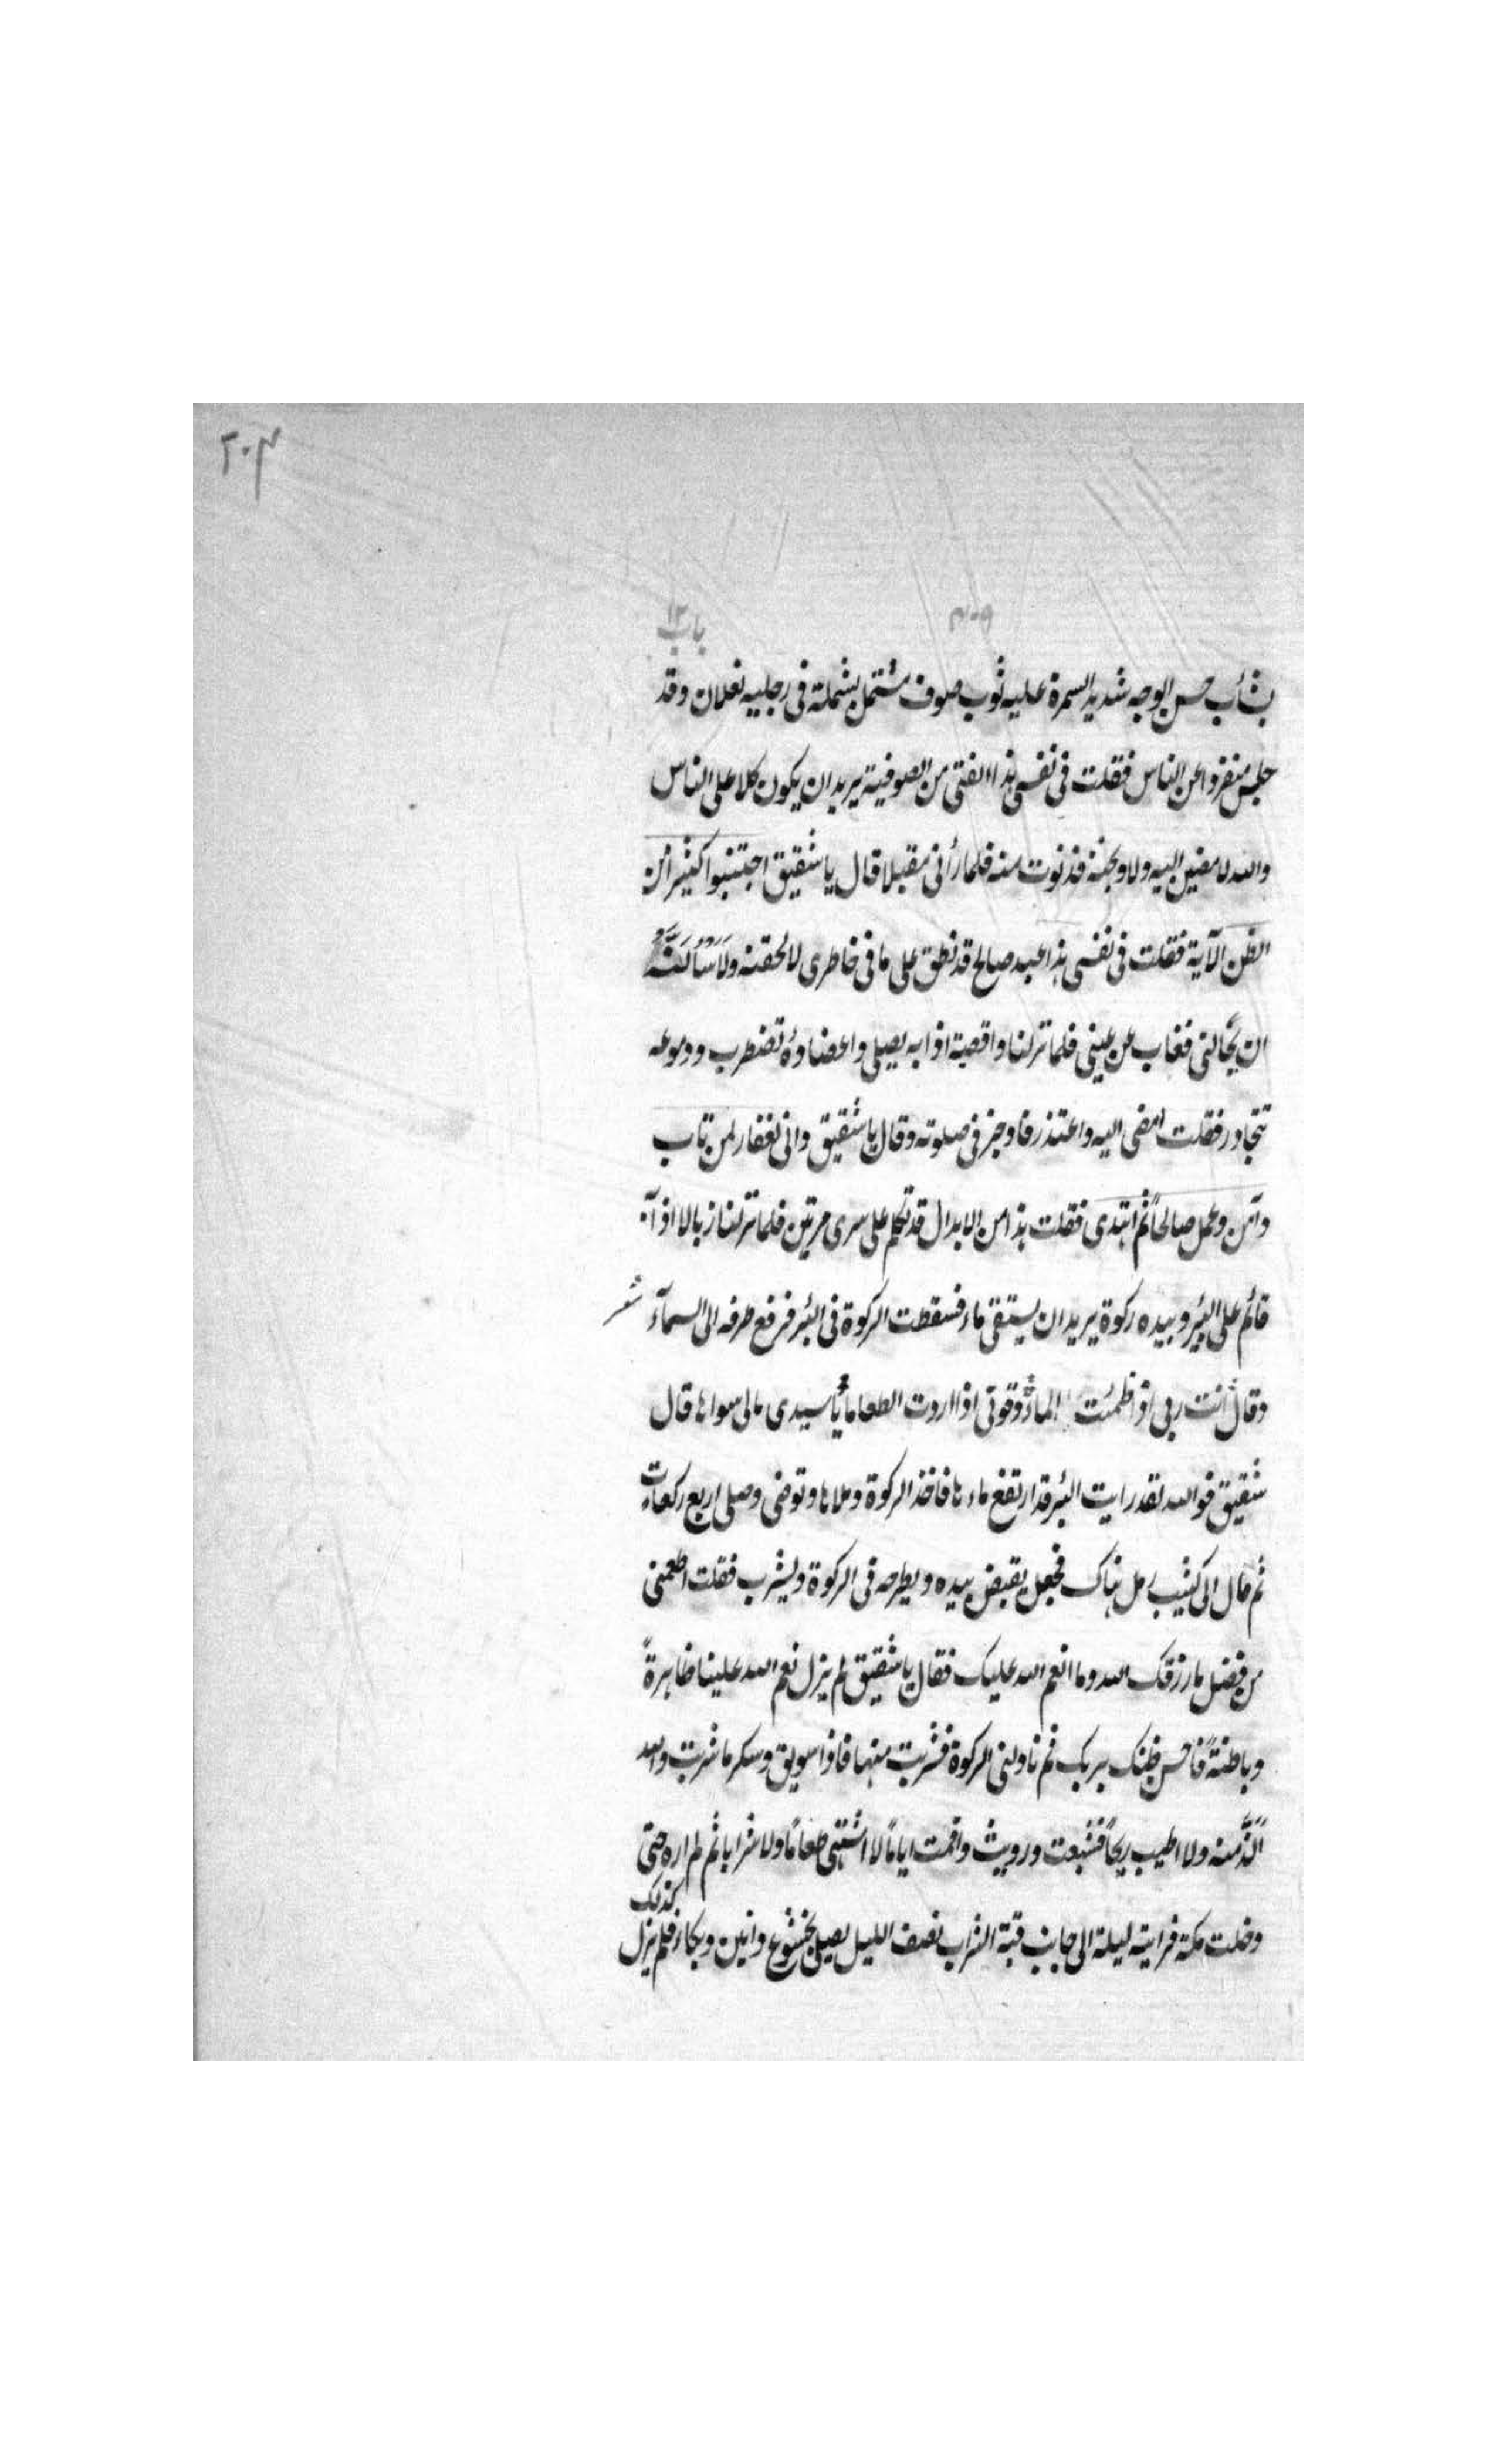 ٢٠٤
٤٠٩
باب ١٢
بشاب حسن الوجه شديد السمرة عليه ثوب صوف مشتمل بشملة فى رجليه نعلان وقد
جلس منفردا عن الناس فقلت فى نفسى هذا الفتى من الصوفية يريد ان يكون كلا على الناس
والله لامضين اليه ولاوبخنه فدنوت منه فلما رأنى مقبلا قال يا شقيق اجتنبوا كثيرا من
الظن الآية فقلت فى نفسى هذا عبد صالح قد نطق على ما فى خاطرى لالحقنه ولَاَسْأَلَنَّهُ
ان يحالنى فغاب عن عينى فلما نزلنا واقصة اذا به يصلى واعضاؤه تضطرب ودموعه
تتحادر فقلت امضى اليه واعتذر فاوجز فى صلوته وقال يا شقيق وانى لغفار لمن تاب
وآمن وعمل صالحاً ثم اهتدى فقلت هذا من الابدال قد تكلم على سرى مرتين فلما نزلنا زبالا اذا به
قائم على البئر وبيده ركوة يريد ان يستقى ماء فسقطت الركوة فى البئر فرفع طرفه الى السمآء شعر
وقال انت ربى اذا ظمئت الماءُ وقوتى اذا اردت الطعاما يا سيدى مالى سواها قال
شقيق فوالله لقد رايت البئر قد ارتفع ماءها فاخذ الركوة وملاها وتوضى وصلى اربع ركعات
ثم مال الى كثيب رمل هناك فجعل يقبض بيده ويطرحه فى الركوة ويشرب فقلت اطعمنى
من فضل ما رزقك الله وما انعم الله عليك فقال يا شقيق لم يزل نعم الله علينا ظاهرةً
وباطنةً فاحسن ظنك بربك ثم ناولنى الركوة فشربت منها فاذا سويق وسكر ما شربت والله
اَلَذَّ منه ولا اطيب ريحاً فشبعت ورويت واقمت اياماً لا اشتهى طعاماً ولا شرابا ثم لم اره حتى
دخلت مكة فرايته ليلة الى جانب قبة الشراب نصف الليل يصلى بخشوع وانين وبكاء فلم يزل كذلك